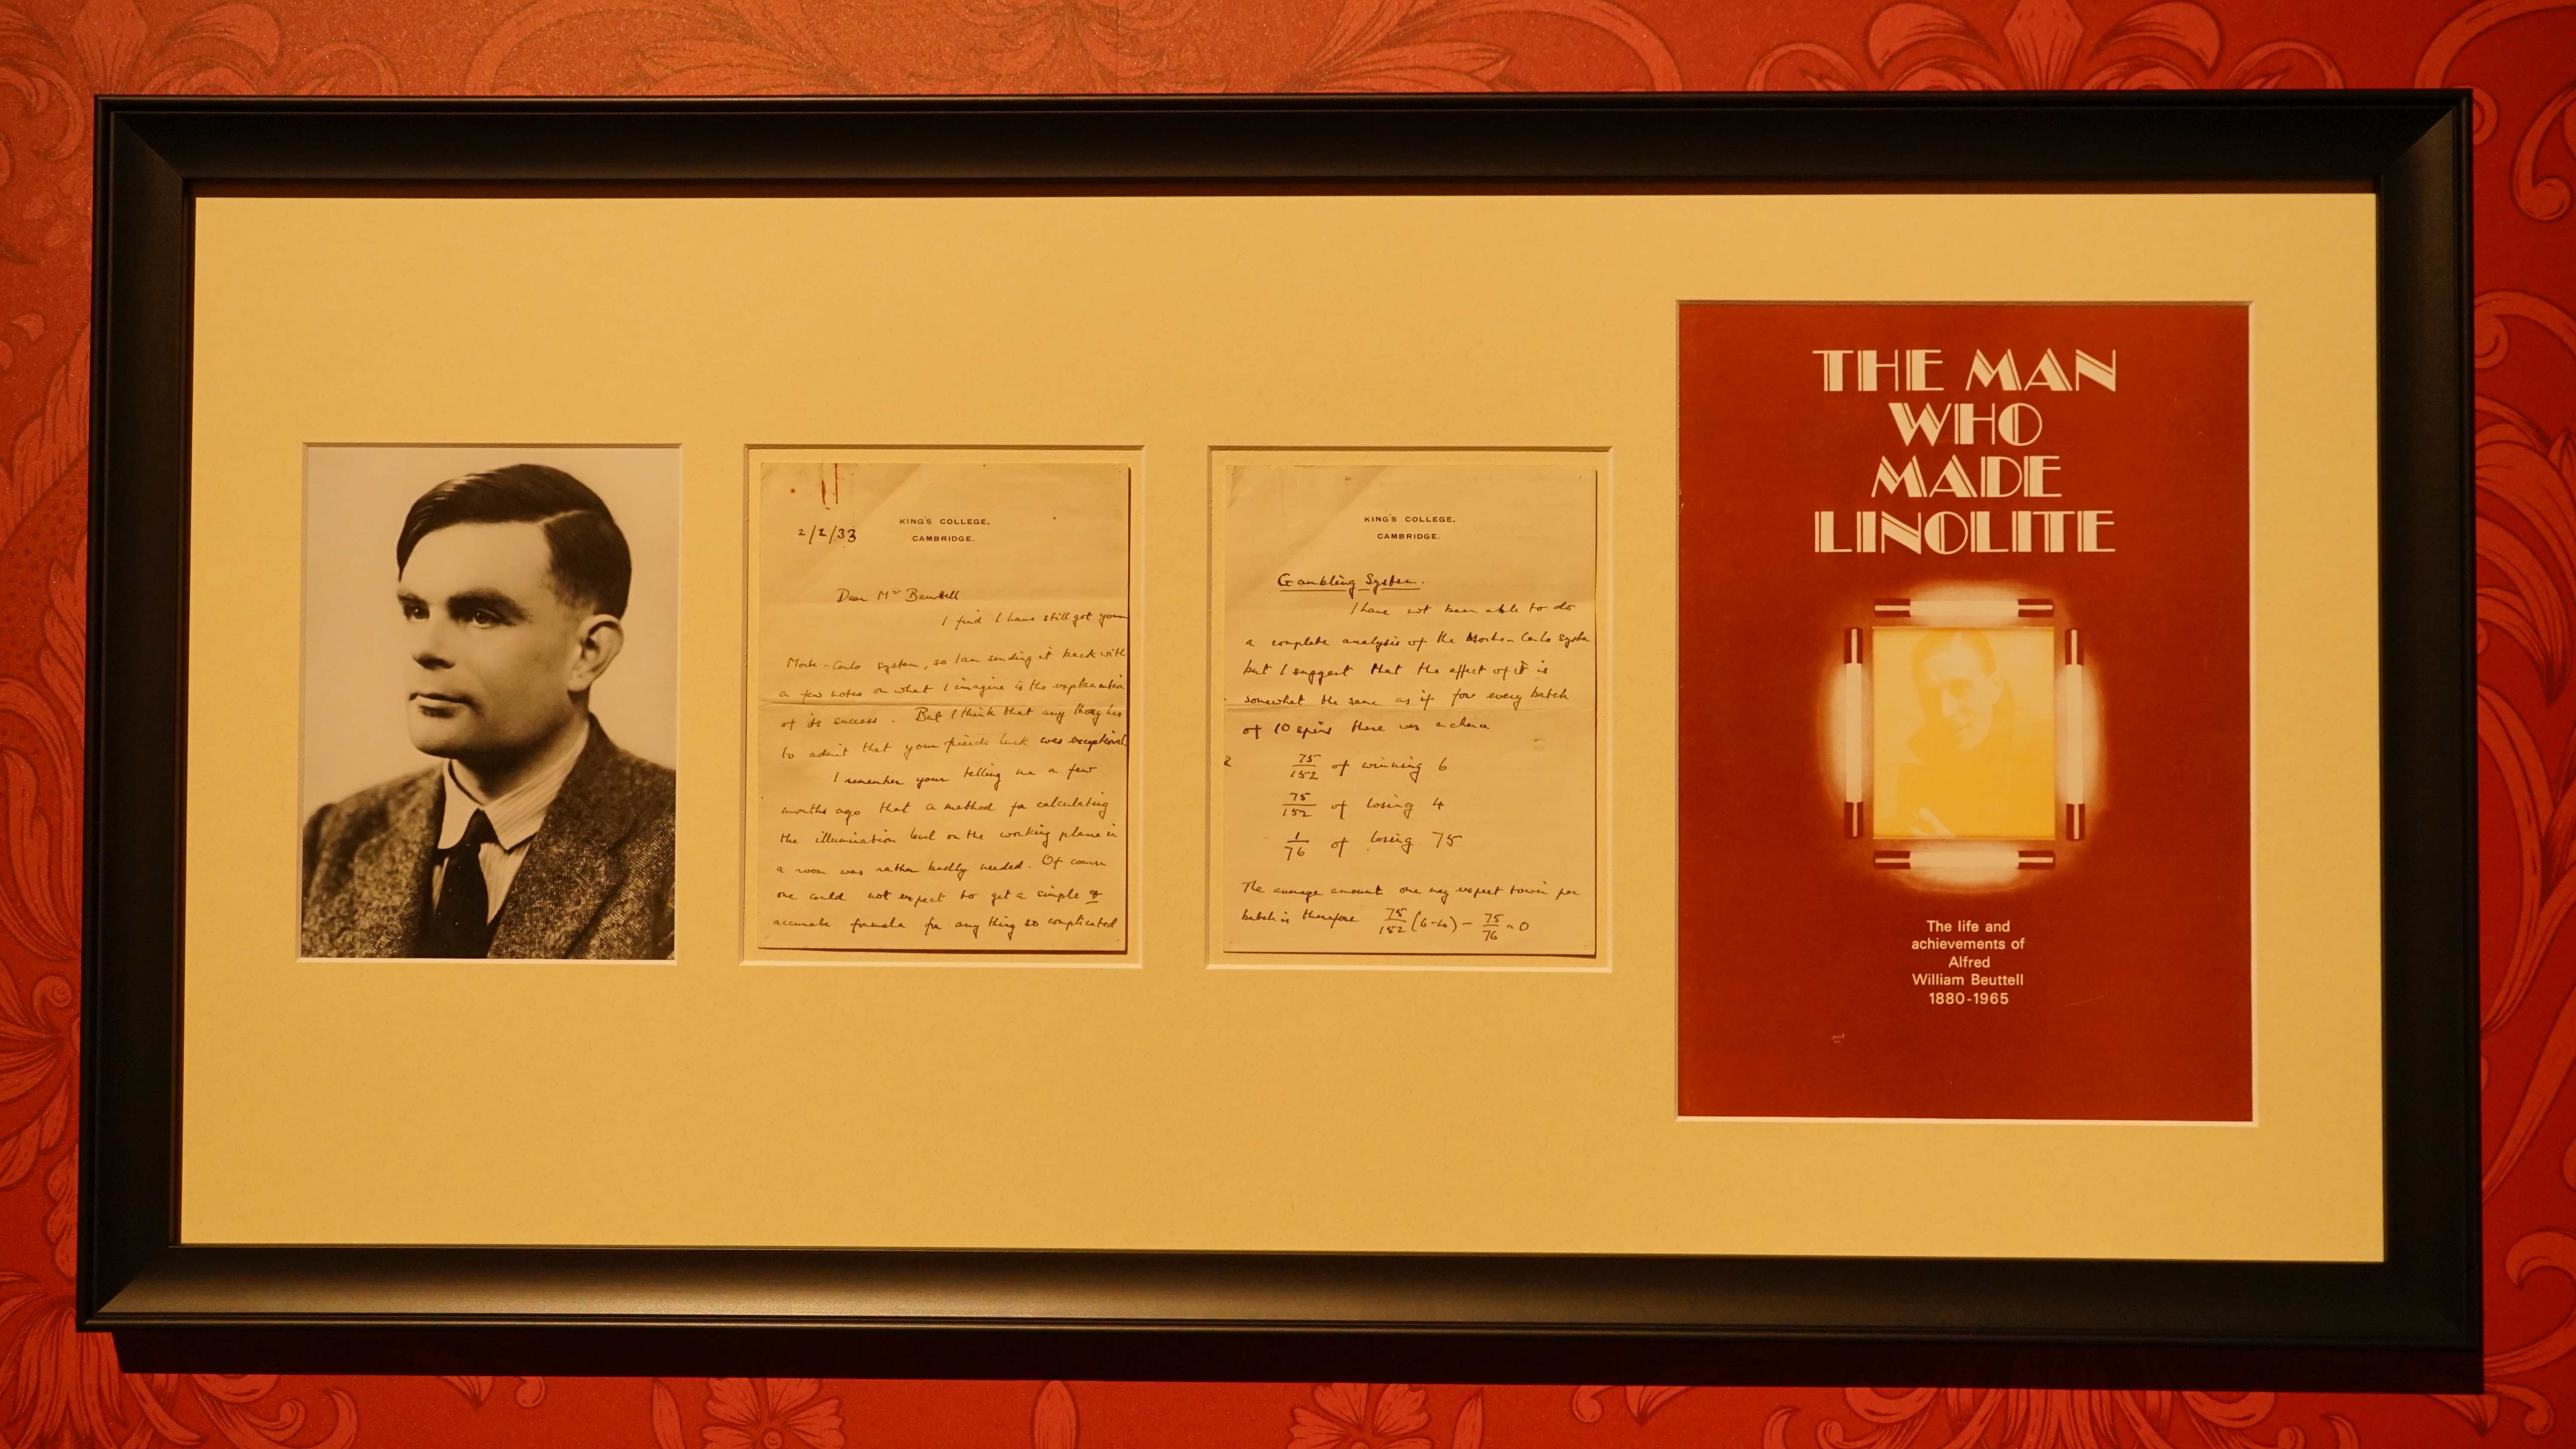 KING'S COLLEGE,
CAMBRIDGE.
2/2/33
Dear Mr Beuttell
I find I have still got your
Monte-Carlo system, so I am sending it back with
a few notes on what I imagine is the explanation
of its success. But I think that any theory has
to admit that your friends luck was exceptional.
I remember your telling me a few
months ago that a method for calculating
the illumination level on the working plane in
a room was rather badly needed. Of course
one could not expect to get a simple &
accurate formula for any thing so complicated
KING'S COLLEGE,
CAMBRIDGE.
Gambling System.
I have not been able to do
a complete analysis of the Monte-Carlo system
but I suggest that the effect of it is
somewhat the same as if for every batch
of 10 spins there was a chance
75/152 of winning 6
75/152 of losing 4
1/76 of losing 75
The average amount one may expect to win per
batch is therefore 75/152 (6-4) - 75/76 = 0
THE MAN
WHO
MADE
LINOLITE
The life and
achievements of
Alfred
William Beuttell
1880-1965